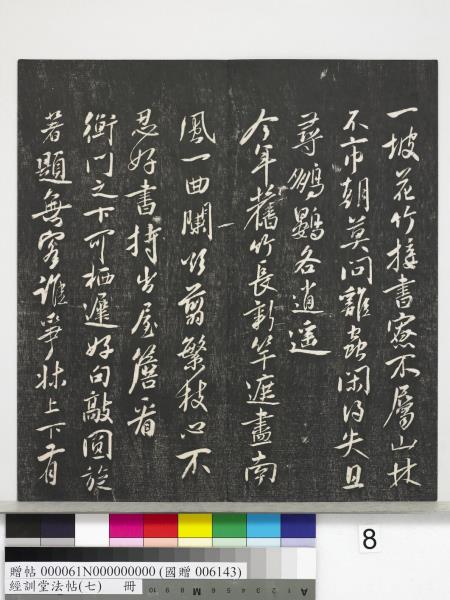 一坡花竹接書寮不屬山林
不市朝莫問雞蟲閑得失且
尋鵬鷃各逍遥
今年舊竹長新竿遮盡南
風一曲闌欲剪繁枝心不
忍好書持出屋簷看
衡門之下可栖遲好句敲圓旋
著題無客誰爭牀上下有
8
贈帖 000061N000000000 (國贈 006143)
經訓堂法帖(七) 冊